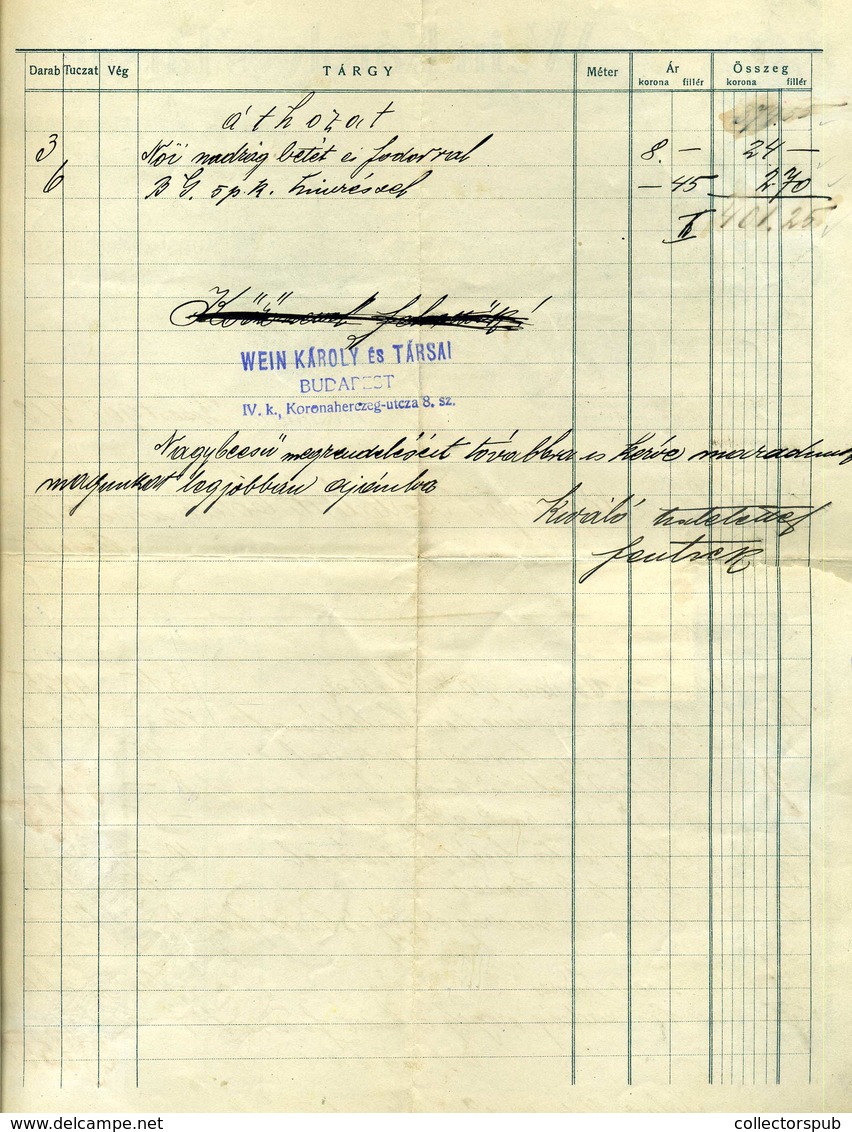 Darab Tuczat Vég TÁRGY Méter Ár korona fillér Összeg korona fillér
áthozat
3 Női nadrág betét és fodorral 8. — 24 —
6 B G. 5 p.k. — 45 2 70
K 401.25
WEIN KÁROLY és TÁRSAI
BUDAPEST
IV. k., Koronaherczeg-utcza 8. sz.
Nagybecsű megrendelését továbbra is kérve maradunk
magunkat legjobban ajánlva
Kiváló tisztelettel
fentiek
delcampe.net
collectorspub